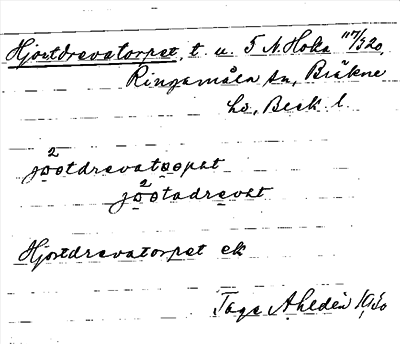 Hjortdrevatorpet, t. u. 5 N. Hoka 117/320
Ringamåla sn, Bräkne
hd, Blek. l.
jo²otdrevatoopət
jo²otadrevət
Hjortdrevatorpet ek
Tage Ahldén 1950